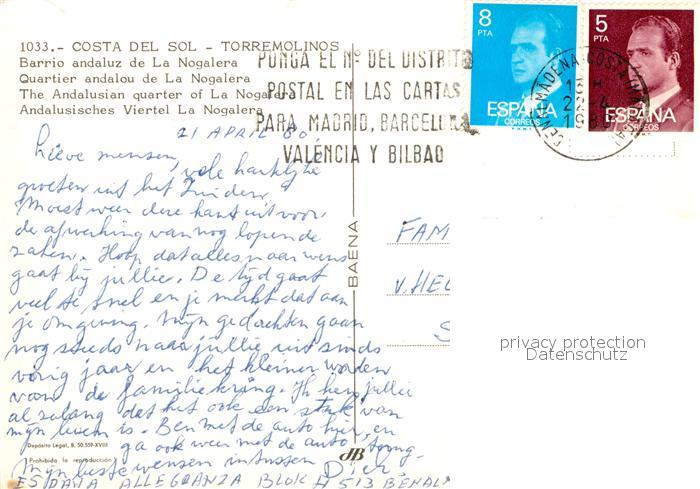 1033.- COSTA DEL SOL - TORREMOLINOS
Barrio andaluz de La Nogalera
Quartier andalou de La Nogalera
The Andalusian quarter of La Nogalera
Andalusisches Viertel La Nogalera
8
PTA
ESPAÑA
CORREOS
5
PTA
ESPAÑA
CORREOS
PONGA EL Nº DEL DISTRITO
POSTAL EN LAS CARTAS
PARA MADRID, BARCELONA
VALENCIA Y BILBAO
BENALMADENA-COSTA
21 APRIL 80
Lieve mensen,
vele hartelijke
groeten uit het Zuiden.
Moest weer deze kant uit voor
de afwerking van nog lopende
zaken. Hoop dat alles naar wens
gaat bij jullie. De tijd gaat
veel te snel en je merkt dat aan
je omgeving. Mijn gedachten gaan
nog steeds naar jullie uit sinds
vorig jaar en het kleiner worden
van de familiekring. Ik ken jullie
al zolang dat het ook een stuk van
mijn leven is. Ben met de auto hier en
ga ook weer met de auto terug.
Mijn beste wensen intussen
ESPAÑA ALLEGRANZA BLOK A 513 BENAL
BAENA
FAM
V. HE
S
Depósito Legal, B. 50.559-XVIII
Prohibida la reproducción
JB
privacy protection
Datenschutz